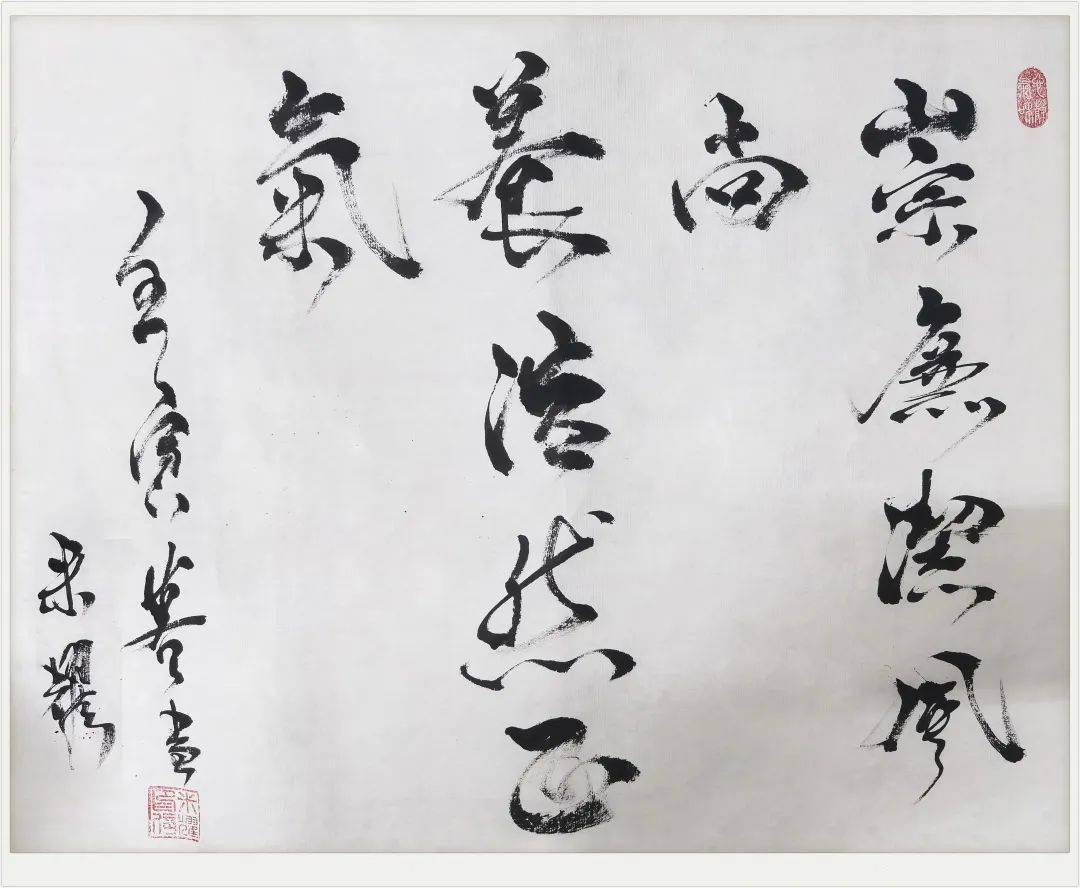 崇廉潔風
尚
養浩然正
氣
壬寅書
朱耀